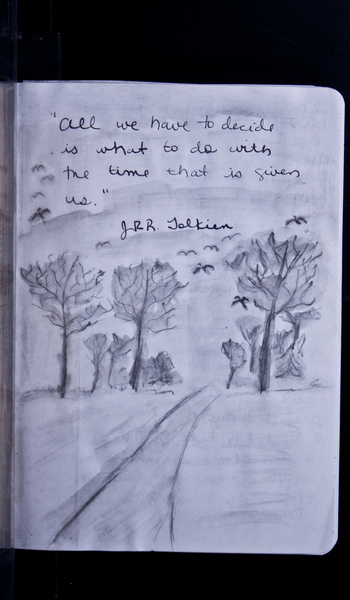 "All we have to decide
is what to do with
the time that is given
us."
J.R.R. Tolkien